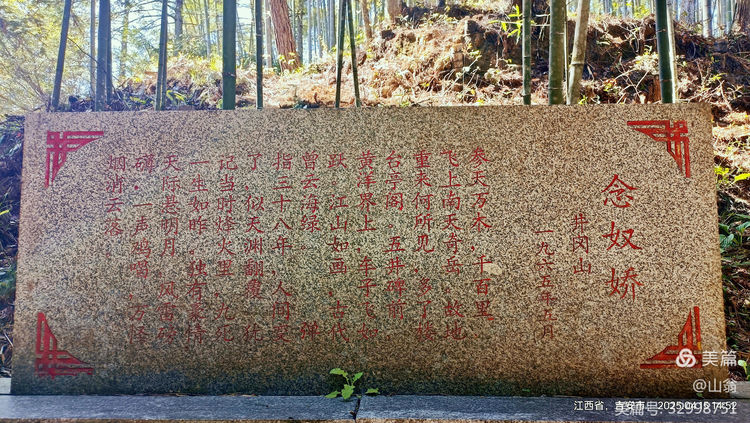 念奴娇
井冈山
一九六五年五月
参天万木，千百里，
飞上南天奇岳。故地
重来何所见，多了楼
台亭阁。五井碑前，
黄洋界上，车子飞如
跃。江山如画，古代
曾云海绿。 弹
指三十八年，人间变
了，似天渊翻覆。犹
记当时烽火里，九死
一生如昨。独有豪情，
天际悬明月，风雷磅
礴。一声鸡唱，万怪
烟消云落。
美篇
@山翁
江西省，吉安市，2025.04.15 14:52
美篇号: 32998751